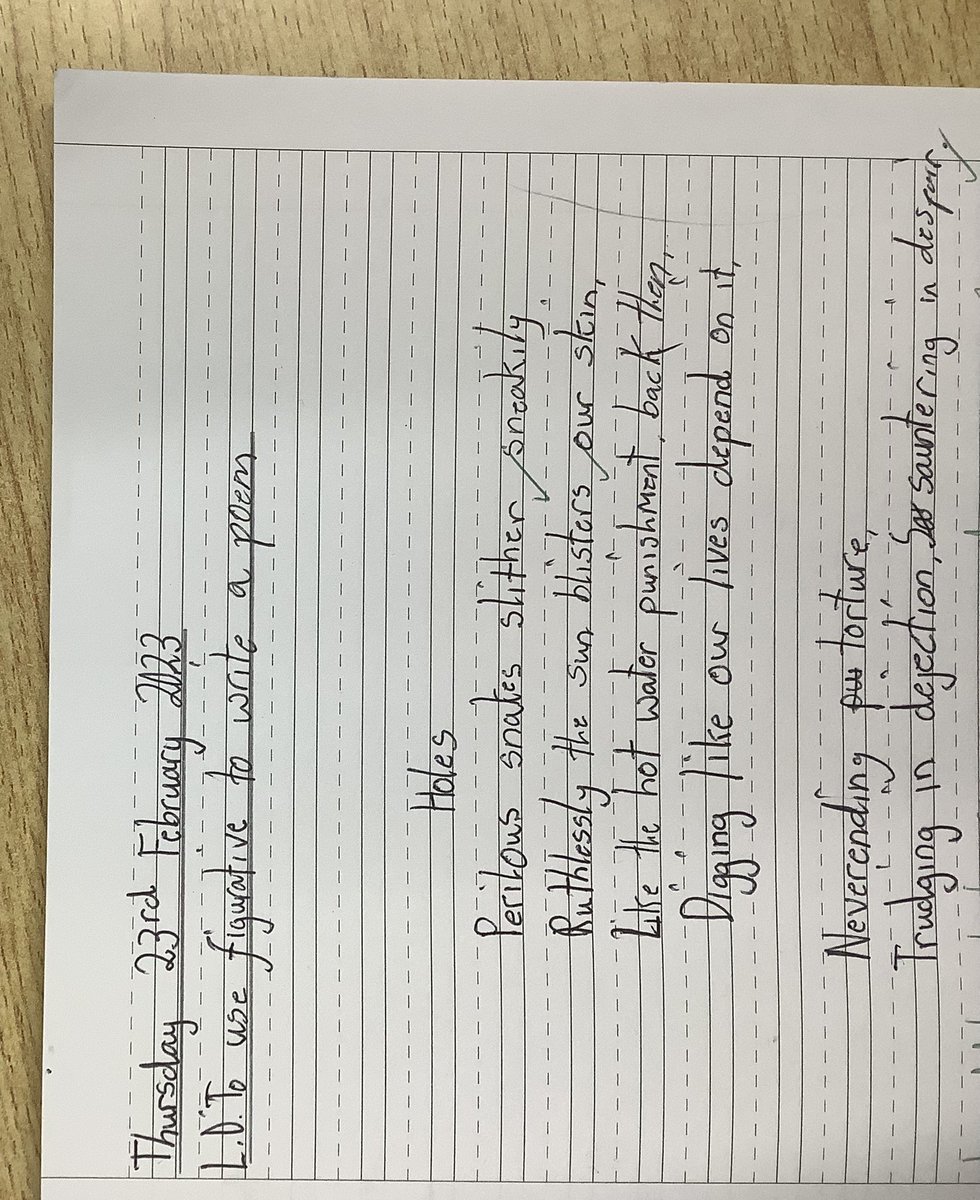 Thursday 23rd February 2023
L.O: To use figurative to write a poem
Holes
Perilous snakes slither sneakily
Ruthlessly the sun blisters our skin,
Like the hot water punishment, back then,
Digging like our lives depend on it,
Neverending torture,
Trudging in dejection, sauntering in despair,